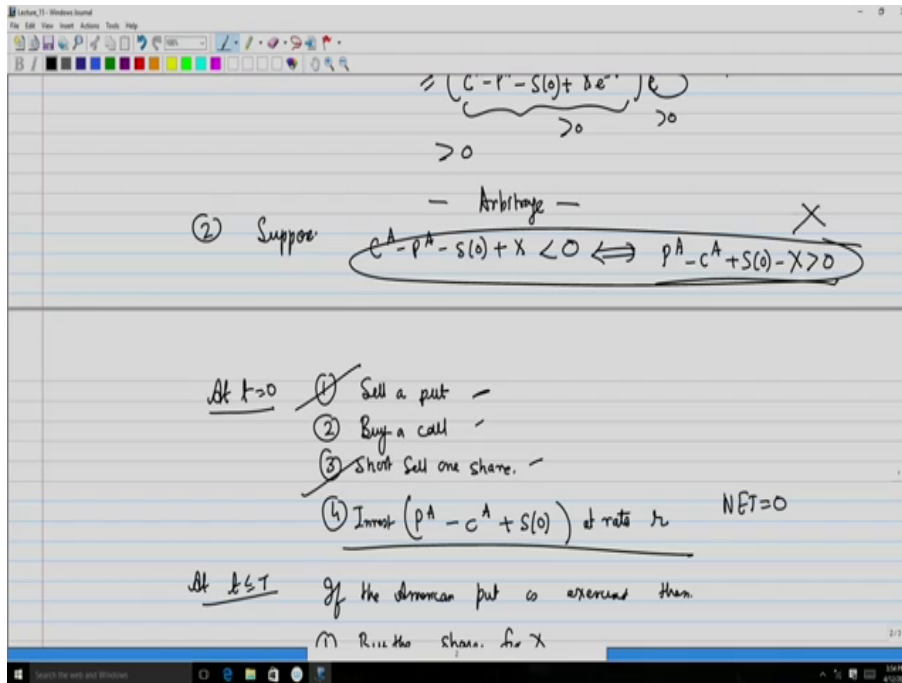 Lecture_15 - Windows Journal
File Edit View Insert Actions Tools Help
B I
= (C - P - S(0) + X e
> 0 > 0
> 0
- Arbitrage -
X
② Suppose. C^A - P^A - S(0) + X < 0 ⟺ P^A - C^A + S(0) - X > 0
At t=0 ① Sell a put -
② Buy a call
③ Short Sell one share. -
④ Invest (P^A - C^A + S(0)) at rate r NET=0
At t≤T If the American put is exercised then.
① Buy the share for X
2/3
2
Search the web and Windows